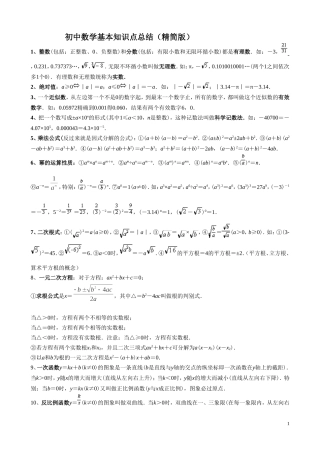 初中数学基本知识点总结（精简版）
1、整数(包括：正整数、0、负整数)和分数(包括：有限小数和无限环循小数)都是有理数．如：－3，21/31，
0.231，0.737373…，无限不环循小数叫做无理数．如：π，－
0.1010010001…(两个1之间依次
多1个0)．有理数和无理数统称为实数．
2、绝对值：a≥0 丨a丨＝a；a≤0 丨a丨＝－a．如：丨－丨＝；丨3.14－π丨＝π－3.14．
3、一个近似数，从左边笫一个不是0的数字起，到最末一个数字止，所有的数字，都叫做这个近似数的有效
数字．如：0.05972精确到0.001得0.060，结果有两个有效数字6，0．
4、把一个数写成±a×10ⁿ的形式(其中1≤a＜10，n是整数)，这种记数法叫做科学记数法．如：－40700＝－
4.07×10⁵，0.000043＝4.3×10⁻⁵．
5、乘法公式(反过来就是因式分解的公式)：①(a＋b)(a－b)＝a²－b²．②(a±b)²＝a²±2ab＋b²．③(a＋b)(a²
－ab＋b²)＝a³＋b³．④(a－b)(a²＋ab＋b²)＝a³－b³；a²＋b²＝(a＋b)²－2ab，(a－b)²＝(a＋b)²－4ab．
6、幂的运算性质：①aᵐ×aⁿ＝aᵐ⁺ⁿ．②aᵐ÷aⁿ＝aᵐ⁻ⁿ．③(aᵐ)ⁿ＝aᵐⁿ．④(ab)ⁿ＝aⁿbⁿ．⑤
⑥a⁻ⁿ＝1/aⁿ，特别：()⁻ⁿ＝()ⁿ．⑦a⁰＝1(a≠0)．如：a³×a²＝a⁵，a⁶÷a²＝a⁴，(a³)²＝a⁶，(3a³)³＝27a⁹，(－3)⁻¹
＝－，5⁻²＝＝，()⁻²＝()²＝，(－3.14)º＝1，(－)⁰＝1．
7、二次根式：①()²＝a(a≥0)，②＝丨a丨，③＝×，④＝(a＞0，b≥0)．如：①(3
)²＝45．②＝6．③a＜0时，＝－a．④的平方根＝4的平方根＝±2．(平方根、立方根、
算术平方根的概念)
8、一元二次方程：对于方程：ax²＋bx＋c＝0：
①求根公式是x＝(−b±√(b²−4ac))/2a，其中△＝b²－4ac叫做根的判别式．
当△＞0时，方程有两个不相等的实数根；
当△＝0时，方程有两个相等的实数根；
当△＜0时，方程没有实数根．注意：当△≥0时，方程有实数根．
②若方程有两个实数根x₁和x₂，并且二次三项式ax²＋bx＋c可分解为a(x－x₁)(x－x₂)．
③以a和b为根的一元二次方程是x²－(a＋b)x＋ab＝0．
9、一次函数y＝kx＋b(k≠0)的图象是一条直线(b是直线与y轴的交点的纵坐标即一次函数在y轴上的截距)．
当k＞0时，y随x的增大而增大(直线从左向右上升)；当k＜0时，y随x的增大而减小(直线从左向右下降)．特
别：当b＝0时，y＝kx(k≠0)又叫做正比例函数(y与x成正比例)，图象必过原点．
10、反比例函数y＝(k≠0)的图象叫做双曲线．当k＞0时，双曲线在一、三象限(在每一象限内，从左向右
1